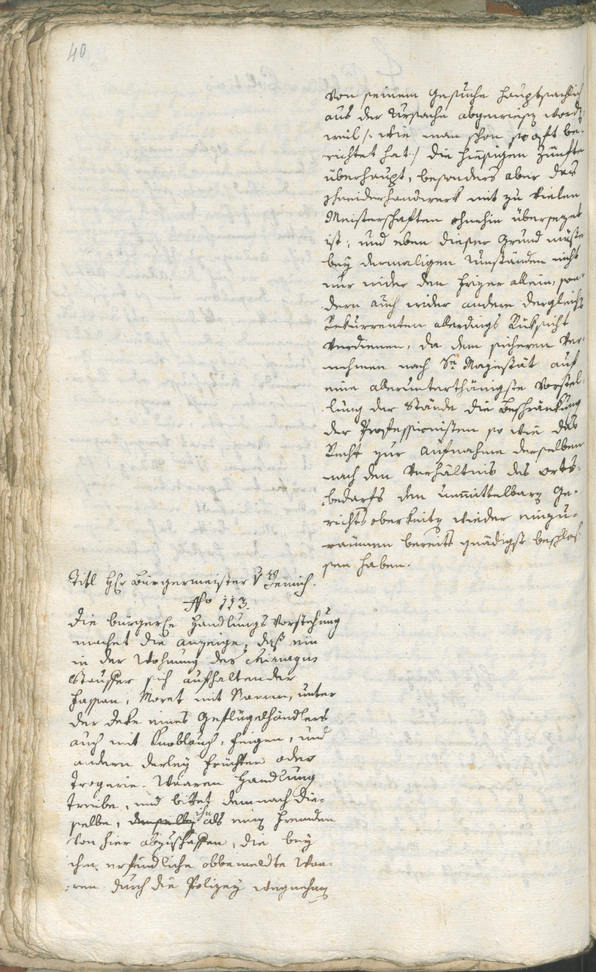 40
von seinem Gesuche hauptsächlich
aus der Ursache abgewiesen word:
weil /: wie man schon so oft be-
richtet hat :/ die hiesigen Zünfte
überhaupt, besonders aber das
Schneiderhandwerk mit zu vielen
Meisterschaften ohnehin übersezet
ist, und eben dieser Grund müsse
bey dermaligen Umständen nicht
nur wider den allein, son-
dern auch wider andere dergleich:
Rekurrenten allerdings Rüksicht
verdienen, da dem sicheren Ver-
nehmen nach Se Majestät auf
eine allerunterthänigste Vorstel-
lung der Stände die Beschränkung
der Professionisten so wie das
Recht zur Aufnahme derselben
nach den Verhältnis des Orts-
bedarfs den unmittelbaren Ge-
richtsobrkeiten wieder einzu-
raumen bereits gnädigst beschlos-
sen haben.
Titl Hr Bürgermeister v
No 113.
Die bürgerle Handlungs Vorstehung
machet die Anzeige, daß ein
in der Wohnung des Chirurgus
Stauffer sich aufhaltender
Moret mit Namen, unter
der deke eines Geflügelhändlers
auch mit Knoblauch, Feigen, und
andern derley Früchten oder
Trogerie-Waaren Handlung
treibe, und bittet demnach die-
selbe, ihn als einen Fremden
von hier abzuschaffen, die bey
ihm erfindliche obbemeldte Waa-
:ren durch die Polizey wegnehmen